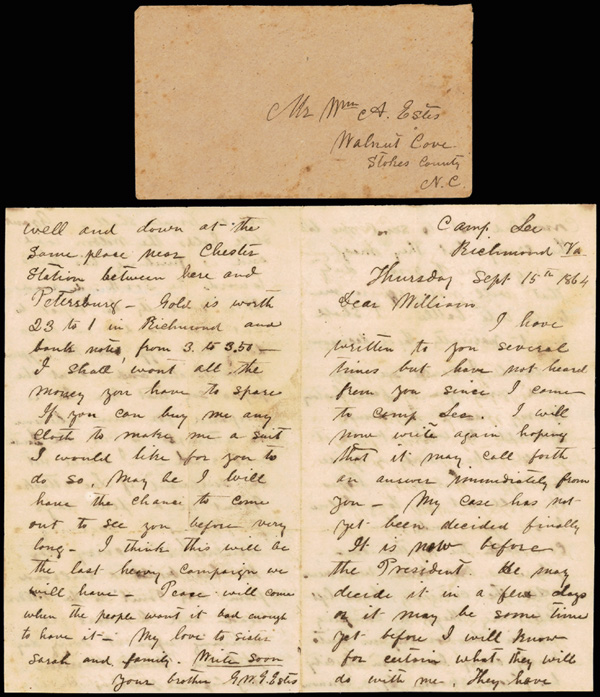 Mr Wm A. Estes
Walnut Cove
Stokes County
N.C
Camp Lee
Richmond Va.
Thursday Sept 15th 1864
Dear William
I have
written to you several
times but have not heard
from you since I came
to Camp Lee. I will
now write again hoping
that it may call forth
an answer immediately from
you — My case has not
yet been decided finally
It is now before
the President. He may
decide it in a few days
or it may be some time
yet before I will know
for certain what they will
do with me. They have
well and down at the
same place near Chester
Station between here and
Petersburg — Gold is worth
23 to 1 in Richmond and
bank notes from 3. to 3.50 —
I shall want all the
money you have to spare
If you can buy me any
cloth to make me a suit
I would like for you to
do so. May be I will
have the chance to come
out to see you before very
long — I think this will be
the last heavy campaign we
will have — Peace will come
when the people want it bad enough
to have it — My love to sister
Sarah and family. Write soon
Your brother G.M.G. Estes